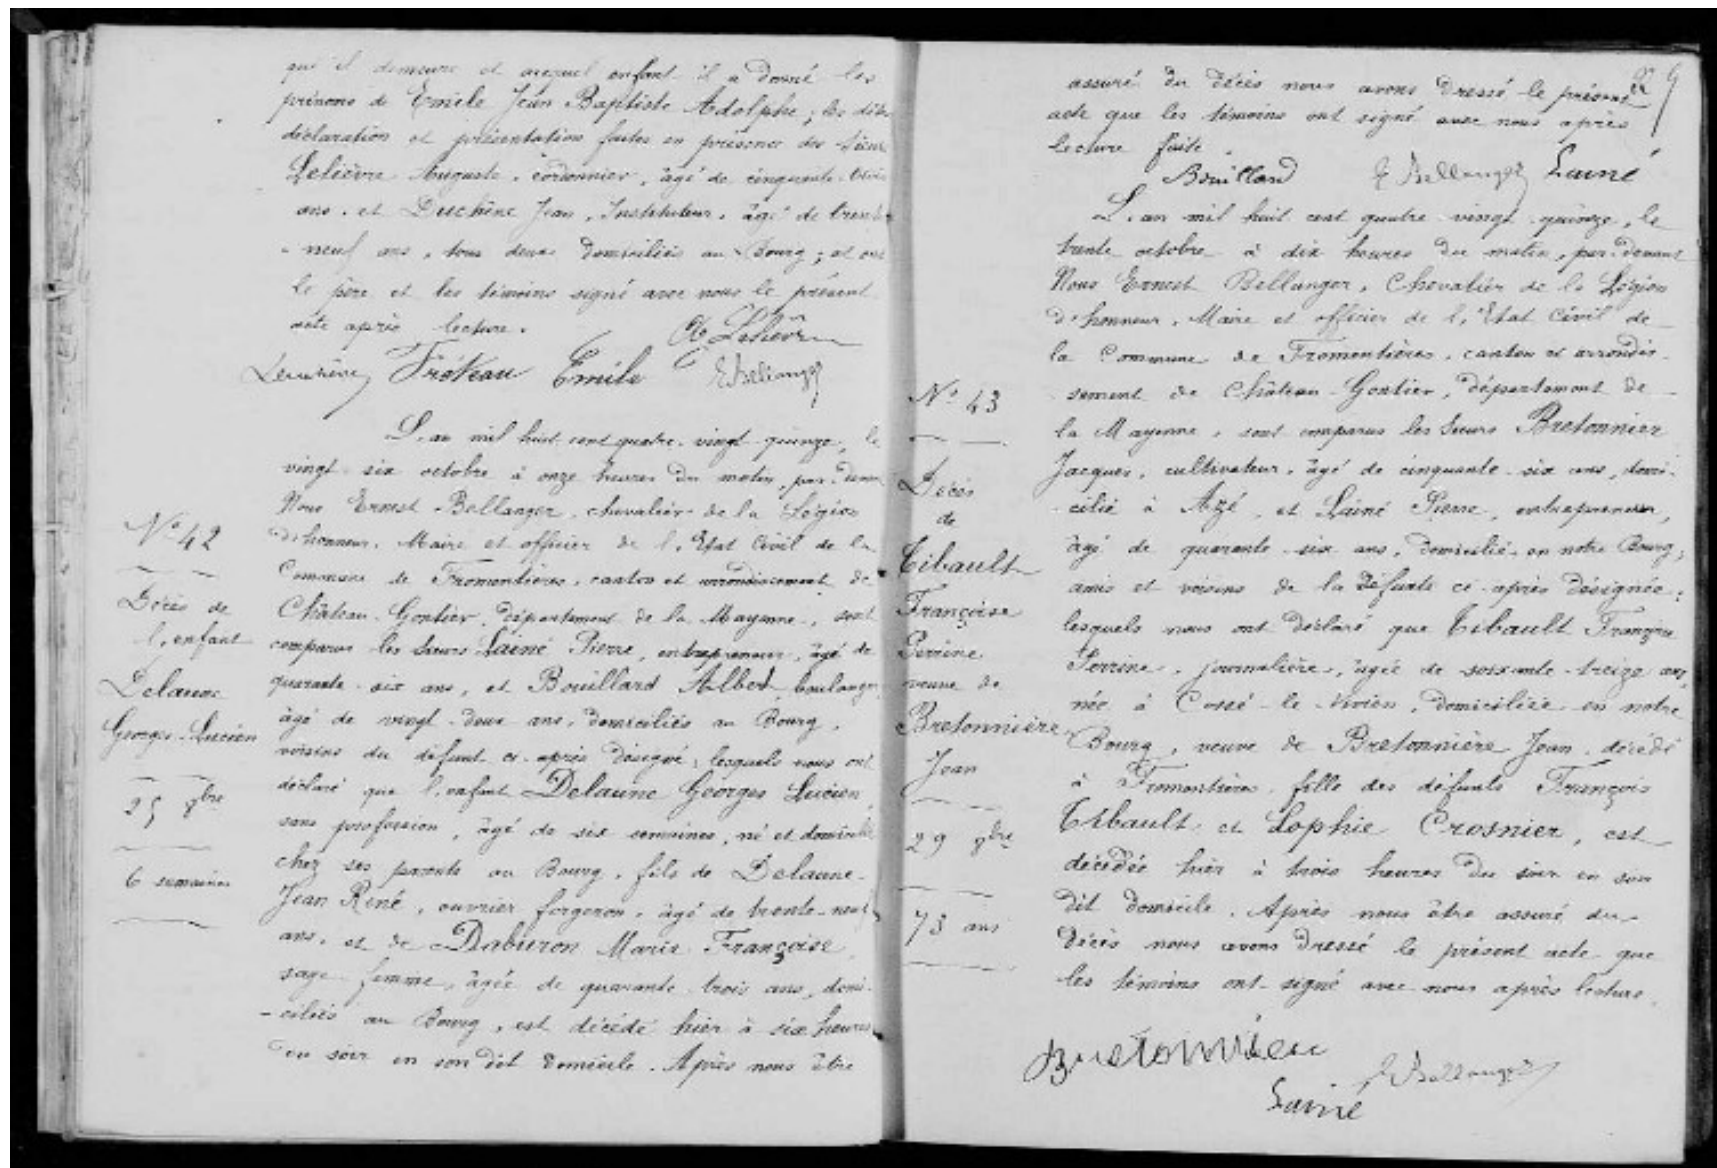 qu'il demeure et auquel enfant il a donné les
prénoms de Emile Jean Baptiste Adolphe ; les dites
déclaration et présentation faites en présence des sieurs
Lelièvre Auguste, cordonnier, âgé de cinquante-trois
ans, et Duchêne Jean, Instituteur, âgé de trente
-neuf ans, tous deux domiciliés au Bourg ; et ont
le père et les témoins signé avec nous le présent
acte après lecture.
Lelièvre
Fréteau Emile E Bellanger
N° 42
Décès de
l'enfant
Delaune
Georges-Lucien
25 8bre
6 semaines
L'an mil huit cent quatre-vingt-quinze, le
vingt-six octobre à onze heures du matin, par-devant
Nous Ernest Bellanger, chevalier de la Légion
d'honneur, Maire et officier de l'Etat Civil de la
Commune de Fromentières, canton et arrondissement de
Château-Gontier, département de la Mayenne, sont
comparus les sieurs Lainé Pierre, entrepreneur, âgé de
quarante-six ans, et Bouillard Albert, boulanger,
âgé de vingt-deux ans, domiciliés au Bourg,
voisins du défunt ci-après désigné ; lesquels nous ont
déclaré que l'enfant Delaune Georges Lucien,
sans profession, âgé de six semaines, né et domicilié
chez ses parents au Bourg, fils de Delaune
Jean René, ouvrier forgeron, âgé de trente-neuf
ans, et de Dabieron Marie Françoise,
sage-femme, âgée de quarante-trois ans, domi-
-ciliés au Bourg, est décédé hier à six heures
du soir en son dit domicile. Après nous être
assuré du décès nous avons dressé le présent
acte que les témoins ont signé avec nous après
lecture faite.
Bouillard E Bellanger Lainé
N° 43
Décès
de
Tibault
Françoise
Perrine
veuve de
Bretonnière
Jean
29 8bre
73 ans
L'an mil huit cent quatre-vingt-quinze, le
trente octobre à dix heures du matin, par-devant
Nous Ernest Bellanger, Chevalier de la Légion
d'honneur, Maire et officier de l'Etat Civil de
la Commune de Fromentières, canton et arrondis-
sement de Château-Gontier, département de
la Mayenne, sont comparus les sieurs Bretonnier
Jacques, cultivateur, âgé de cinquante-six ans, domi-
cilié à Azé, et Lainé Pierre, entrepreneur,
âgé de quarante-six ans, domicilié en notre Bourg,
amis et voisins de la défunte ci-après désignée ;
lesquels nous ont déclaré que Tibault Françoise
Perrine, journalière, âgée de soixante-treize ans,
née à Cossé-le-Vivien, domiciliée en notre
Bourg, veuve de Bretonnière Jean, décédé
à Fromentières, fille des défunts François
Tibault et Sophie Crosnier, est
décédée hier à trois heures du soir en son
dit domicile. Après nous être assuré du
décès nous avons dressé le présent acte que
les témoins ont signé avec nous après lecture.
Bretonnier
E Bellanger
Lainé